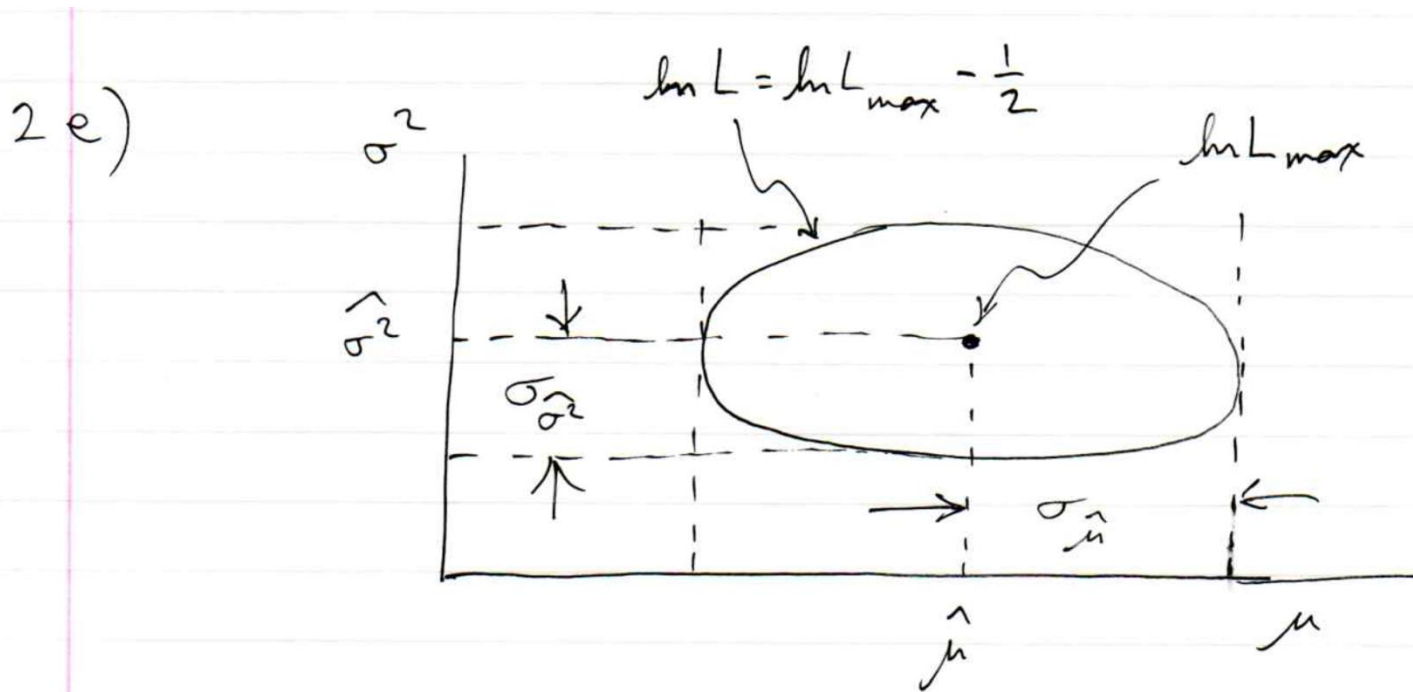 2 e)
ln L = ln L_max - 1/2
σ²
ln L_max
\hat{σ²}
σ_{\hat{σ²}}
σ_{\hat{μ}}
\hat{μ}
μ